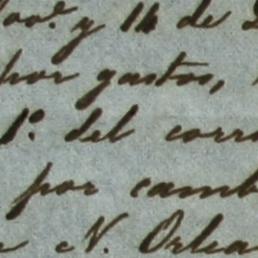 y 14 de
por gastos,
1º. del corr
por camb
N. Orlea